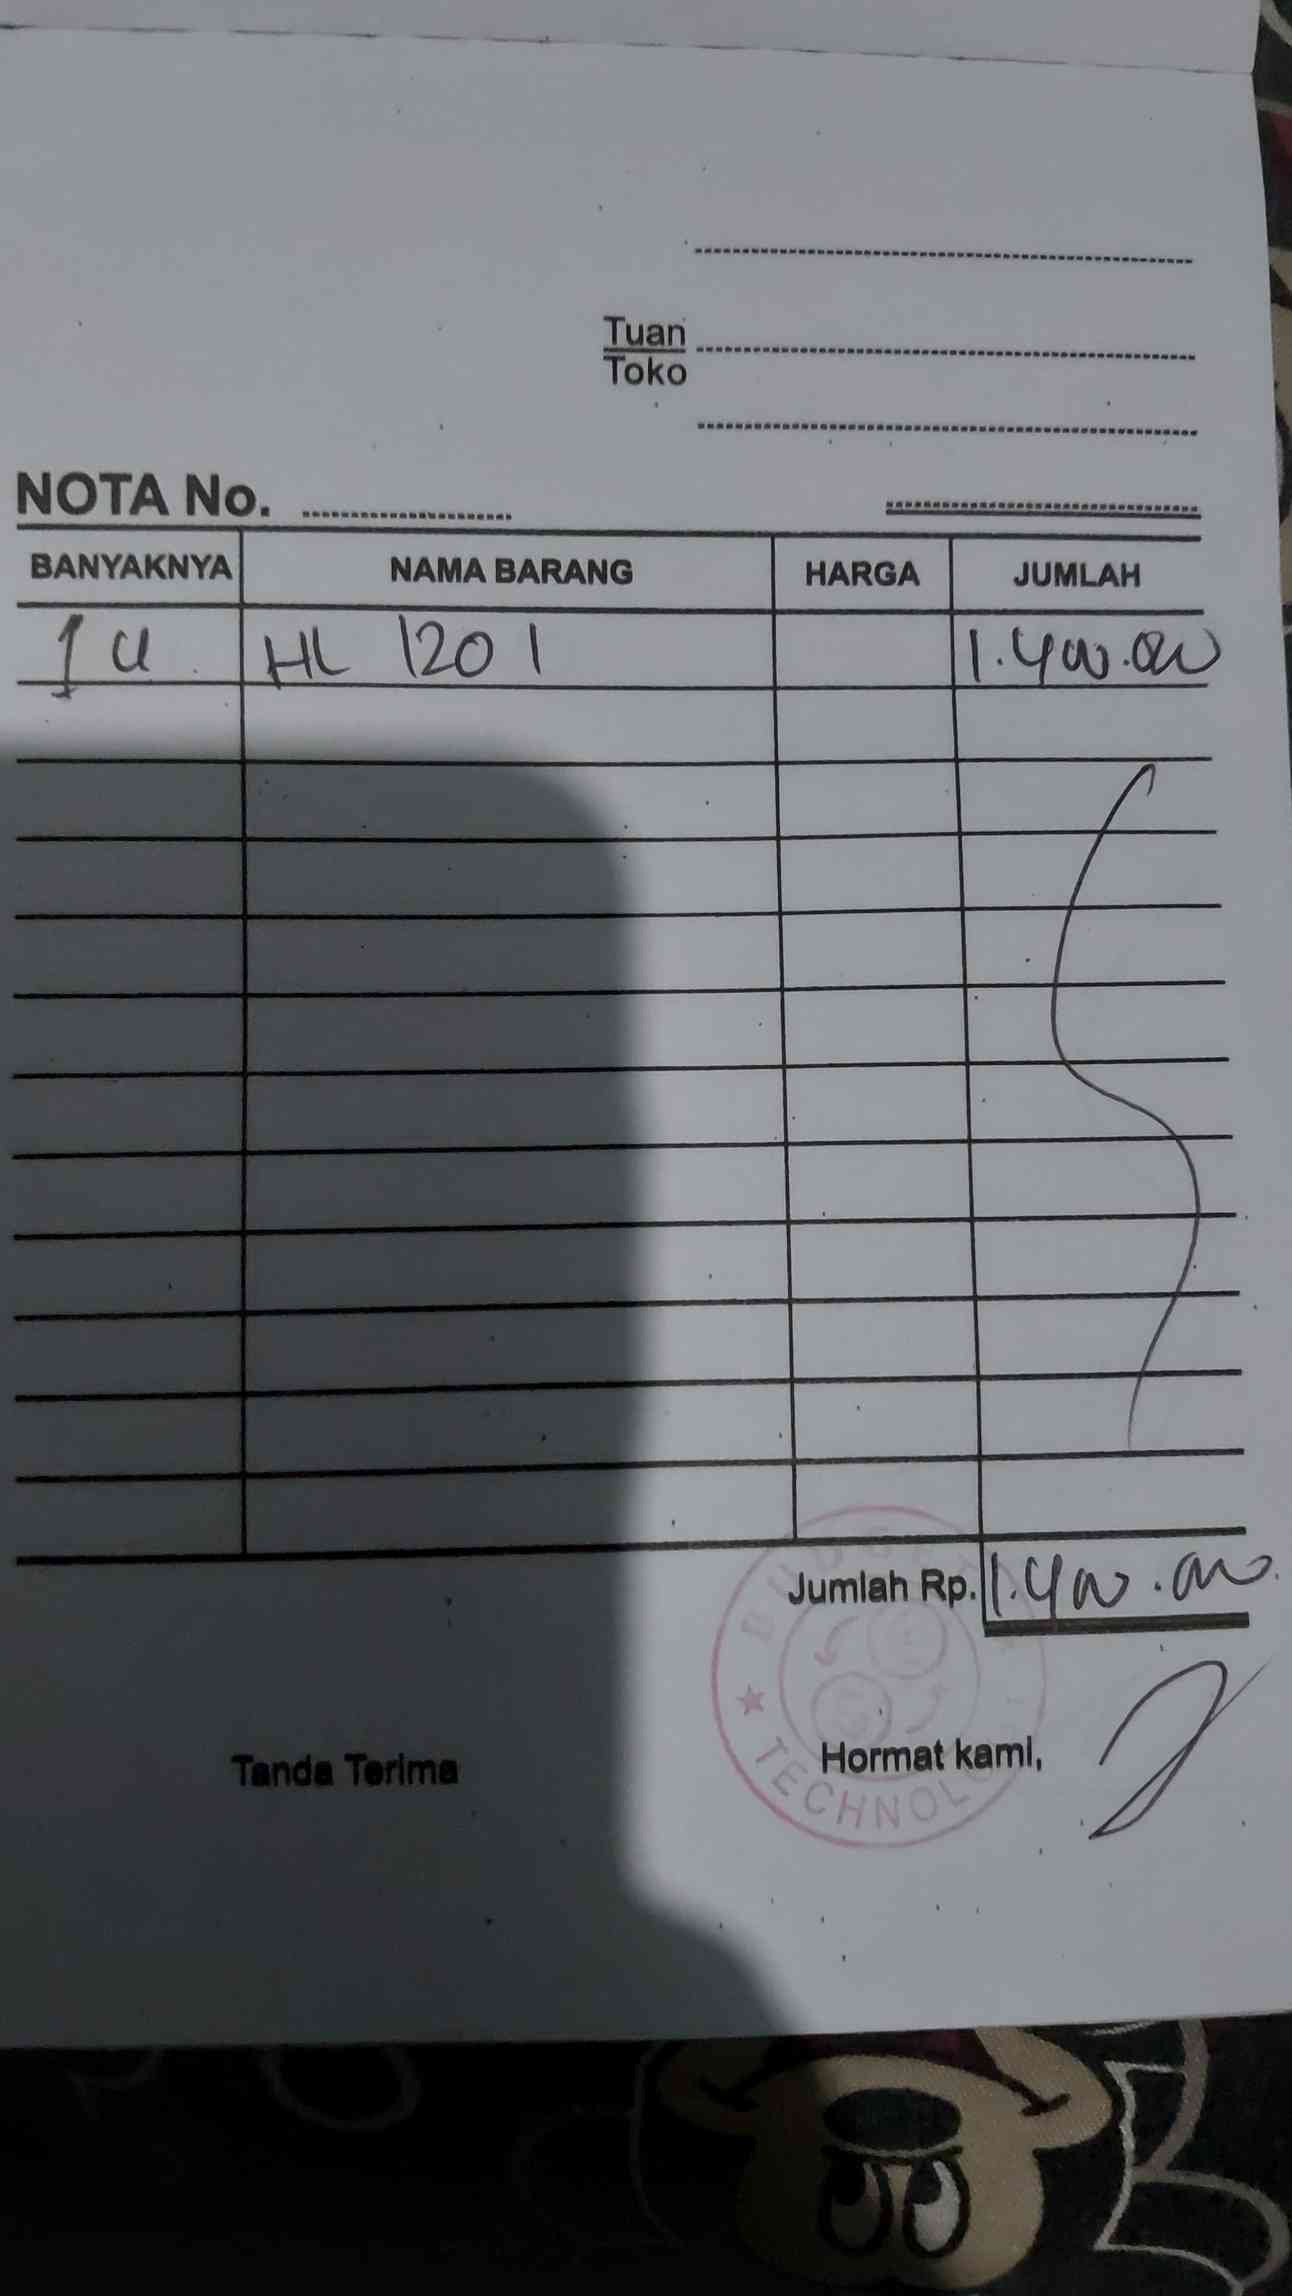 Tuan
Toko
NOTA No.
BANYAKNYA NAMA BARANG HARGA JUMLAH
1 u HL 1201 1.400.000
Jumlah Rp. 1.400.000
Tanda Terima Hormat kami,
TECHNOLO